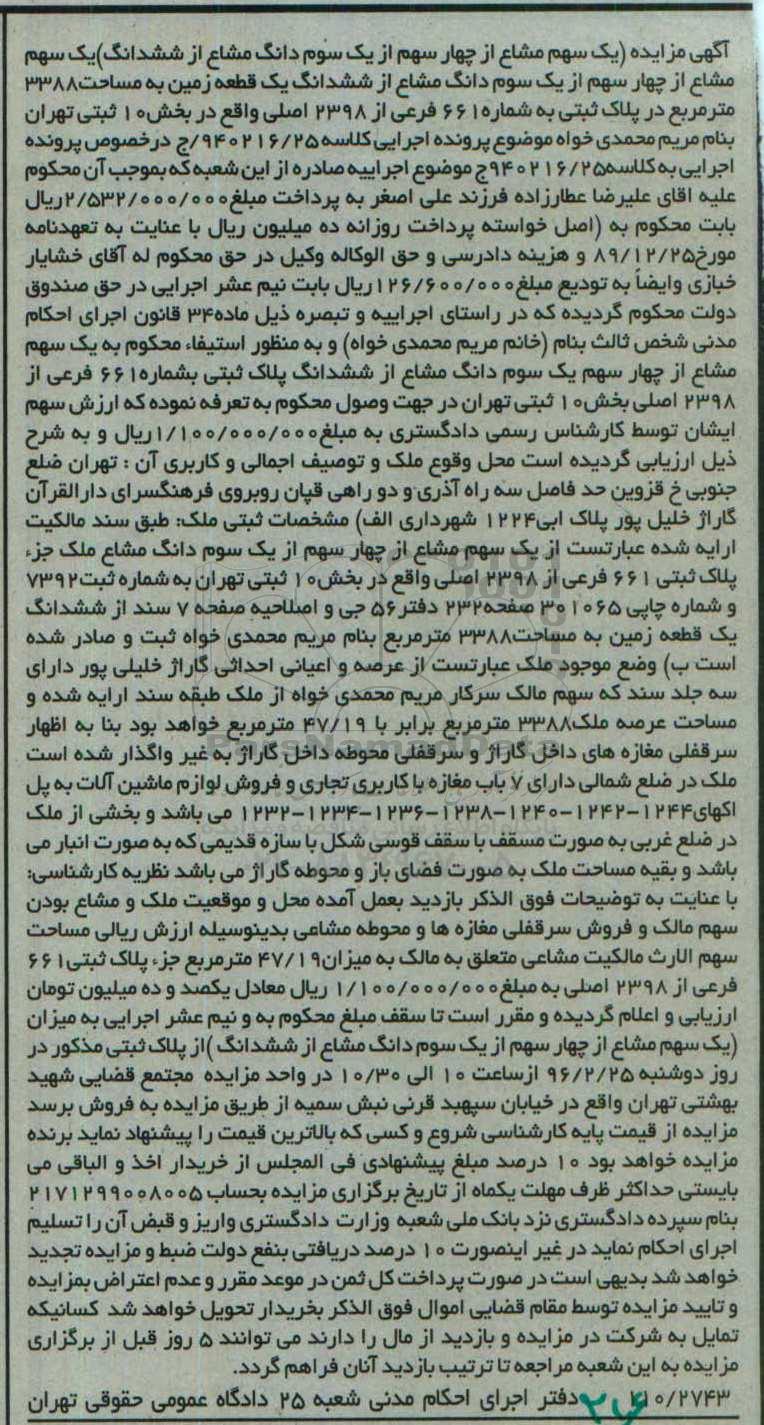 آگهی مزایده (یک سهم مشاع از چهار سهم از یک سوم دانگ مشاع از ششدانگ)یک سهم
مشاع از چهار سهم از یک سوم دانگ مشاع از ششدانگ یک قطعه زمین به مساحت۳۳۸۸
مترمربع در پلاک ثبتی به شماره۶۶۱ فرعی از ۲۳۹۸ اصلی واقع در بخش۱۰ ثبتی تهران
بنام مریم محمدی خواه موضوع پرونده اجرایی کلاسه ۹۴۰۲۱۶/۲۵/ج درخصوص پرونده
اجرایی به کلاسه۹۴۰۲۱۶/۲۵ج موضوع اجراییه صادره از این شعبه که بموجب آن محکوم
علیه اقای علیرضا عطارزاده فرزند علی اصغر به پرداخت مبلغ۲/۵۳۲/۰۰۰/۰۰۰ریال
بابت محکوم به (اصل خواسته پرداخت روزانه ده میلیون ریال با عنایت به تعهدنامه
مورخ۸۹/۱۲/۲۵ و هزینه دادرسی و حق الوکاله وکیل در حق محکوم له آقای خشایار
خبازی وایضاً به تودیع مبلغ۱۲۶/۶۰۰/۰۰۰ریال بابت نیم عشر اجرایی در حق صندوق
دولت محکوم گردیده که در راستای اجراییه و تبصره ذیل ماده۳۴ قانون اجرای احکام
مدنی شخص ثالث بنام (خانم مریم محمدی خواه) و به منظور استیفاء محکوم به یک سهم
مشاع از چهار سهم یک سوم دانگ مشاع از ششدانگ پلاک ثبتی بشماره۶۶۱ فرعی از
۲۳۹۸ اصلی بخش۱۰ ثبتی تهران در جهت وصول محکوم به تعرفه نموده که ارزش سهم
ایشان توسط کارشناس رسمی دادگستری به مبلغ۱/۱۰۰/۰۰۰/۰۰۰ریال و به شرح
ذیل ارزیابی گردیده است محل وقوع ملک و توصیف اجمالی و کاربری آن : تهران ضلع
جنوبی خ قزوین حد فاصل سه راه آذری و دو راهی قپان روبروی فرهنگسرای دارالقرآن
گاراژ خلیل پور پلاک ابی۱۲۲۴ شهرداری الف) مشخصات ثبتی ملک: طبق سند مالکیت
ارایه شده عبارتست از یک سهم مشاع از چهار سهم از یک سوم دانگ مشاع ملک جزء
پلاک ثبتی ۶۶۱ فرعی از ۲۳۹۸ اصلی واقع در بخش۱۰ ثبتی تهران به شماره ثبت۷۳۹۲
و شماره چاپی ۳۰۱۰۶۵ صفحه۲۳۲ دفتر۵۶ جی و اصلاحیه صفحه ۷ سند از ششدانگ
یک قطعه زمین به مساحت۳۳۸۸ مترمربع بنام مریم محمدی خواه ثبت و صادر شده
است ب) وضع موجود ملک عبارتست از عرصه و اعیانی احداثی گاراژ خلیلی پور دارای
سه جلد سند که سهم مالک سرکار مریم محمدی خواه از ملک طبقه سند ارایه شده و
مساحت عرصه ملک۳۳۸۸ مترمربع برابر با ۴۷/۱۹ مترمربع خواهد بود بنا به اظهار
سرقفلی مغازه های داخل گاراژ و سرقفلی محوطه داخل گاراژ به غیر واگذار شده است
ملک در ضلع شمالی دارای ۷ باب مغازه با کاربری تجاری و فروش لوازم ماشین آلات به پل
اکهای۱۲۴۴-۱۲۴۲-۱۲۴۰-۱۲۳۸-۱۲۳۶-۱۲۳۴-۱۲۳۲ می باشد و بخشی از ملک
در ضلع غربی به صورت مسقف با سقف قوسی شکل با سازه قدیمی که به صورت انبار می
باشد و بقیه مساحت ملک به صورت فضای باز و محوطه گاراژ می باشد نظریه کارشناسی:
با عنایت به توضیحات فوق الذکر بازدید بعمل آمده محل و موقعیت ملک و مشاع بودن
سهم مالک و فروش سرقفلی مغازه ها و محوطه مشاعی بدینوسیله ارزش ریالی مساحت
سهم الارث مالکیت مشاعی متعلق به مالک به میزان۴۷/۱۹ مترمربع جزء پلاک ثبتی۶۶۱
فرعی از ۲۳۹۸ اصلی به مبلغ۱/۱۰۰/۰۰۰/۰۰۰ ریال معادل یکصد و ده میلیون تومان
ارزیابی و اعلام گردیده و مقرر است تا سقف مبلغ محکوم به و نیم عشر اجرایی به میزان
(یک سهم مشاع از چهار سهم از یک سوم دانگ مشاع از ششدانگ )از پلاک ثبتی مذکور در
روز دوشنبه ۹۶/۲/۲۵ ازساعت ۱۰ الی ۱۰/۳۰ در واحد مزایده مجتمع قضایی شهید
بهشتی تهران واقع در خیابان سپهبد قرنی نبش سمیه از طریق مزایده به فروش برسد
مزایده از قیمت پایه کارشناسی شروع و کسی که بالاترین قیمت را پیشنهاد نماید برنده
مزایده خواهد بود ۱۰ درصد مبلغ پیشنهادی فی المجلس از خریدار اخذ و الباقی می
بایستی حداکثر ظرف مهلت یکماه از تاریخ برگزاری مزایده بحساب ۲۱۷۱۲۹۹۰۰۸۰۰۵
بنام سپرده دادگستری نزد بانک ملی شعبه وزارت دادگستری واریز و قبض آن را تسلیم
اجرای احکام نماید در غیر اینصورت ۱۰ درصد دریافتی بنفع دولت ضبط و مزایده تجدید
خواهد شد بدیهی است در صورت پرداخت کل ثمن در موعد مقرر و عدم اعتراض بمزایده
و تایید مزایده توسط مقام قضایی اموال فوق الذکر بخریدار تحویل خواهد شد کسانیکه
تمایل به شرکت در مزایده و بازدید از مال را دارند می توانند ۵ روز قبل از برگزاری
مزایده به این شعبه مراجعه تا ترتیب بازدید آنان فراهم گردد.
۱۱۰/۲۷۴۳ دفتر اجرای احکام مدنی شعبه ۲۵ دادگاه عمومی حقوقی تهران